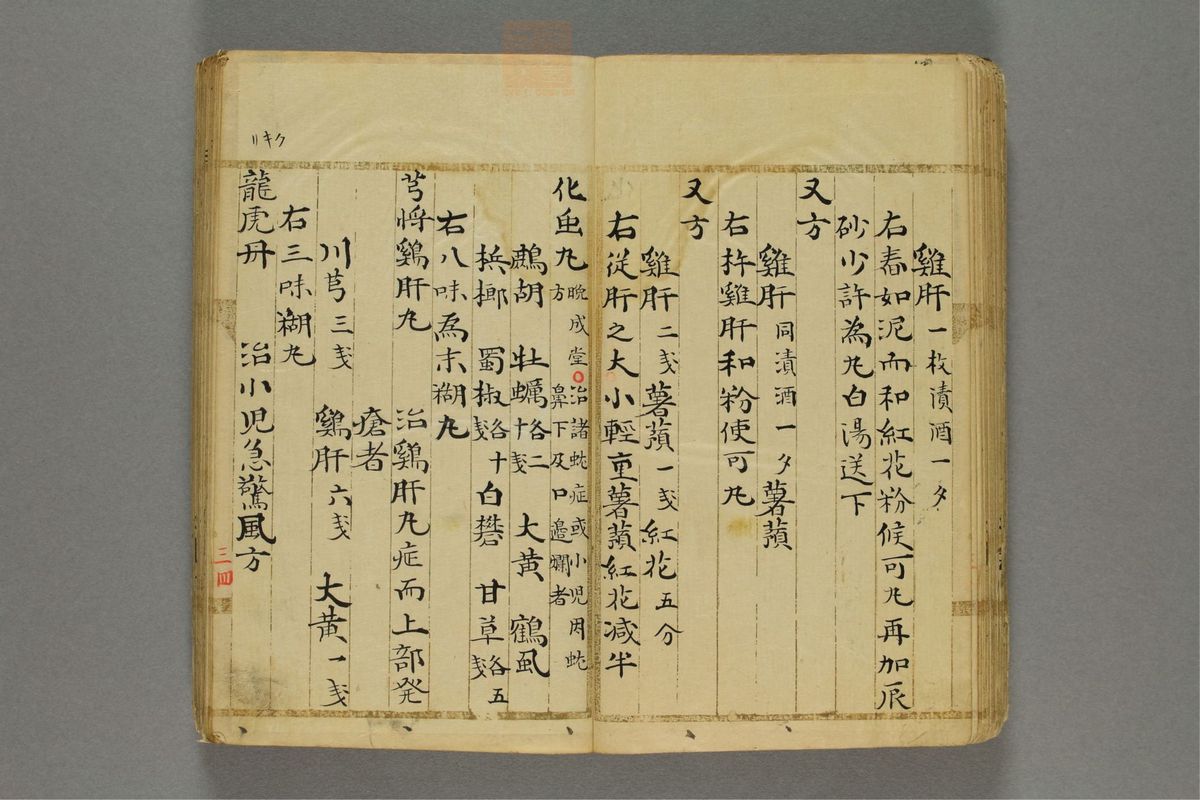 雞肝一枚漬酒一夕
右舂如泥而和紅花粉候可丸再加辰
砂少許為丸白湯送下
又方
雞肝同漬酒一夕薯蕷
右杵雞肝和粉使可丸
又方
雞肝二戔薯蕷一戔紅花五分
右從肝之大小輕重薯蕷紅花減半
化虫丸晩成堂方○治諸蚘症或小児因蚘鼻下及口邉爛者
鷓胡 牡蠣各二十戔 大黄 鶴虱
檳榔 蜀椒各十戔 白礬 甘草各五戔
右八味為末糊丸
芎將鷄肝丸 治鷄肝丸症而上部発
瘡者
川芎三戔 鷄肝六戔 大黄一戔
右三味糊丸
龍虎丹 治小児急驚風方
三四